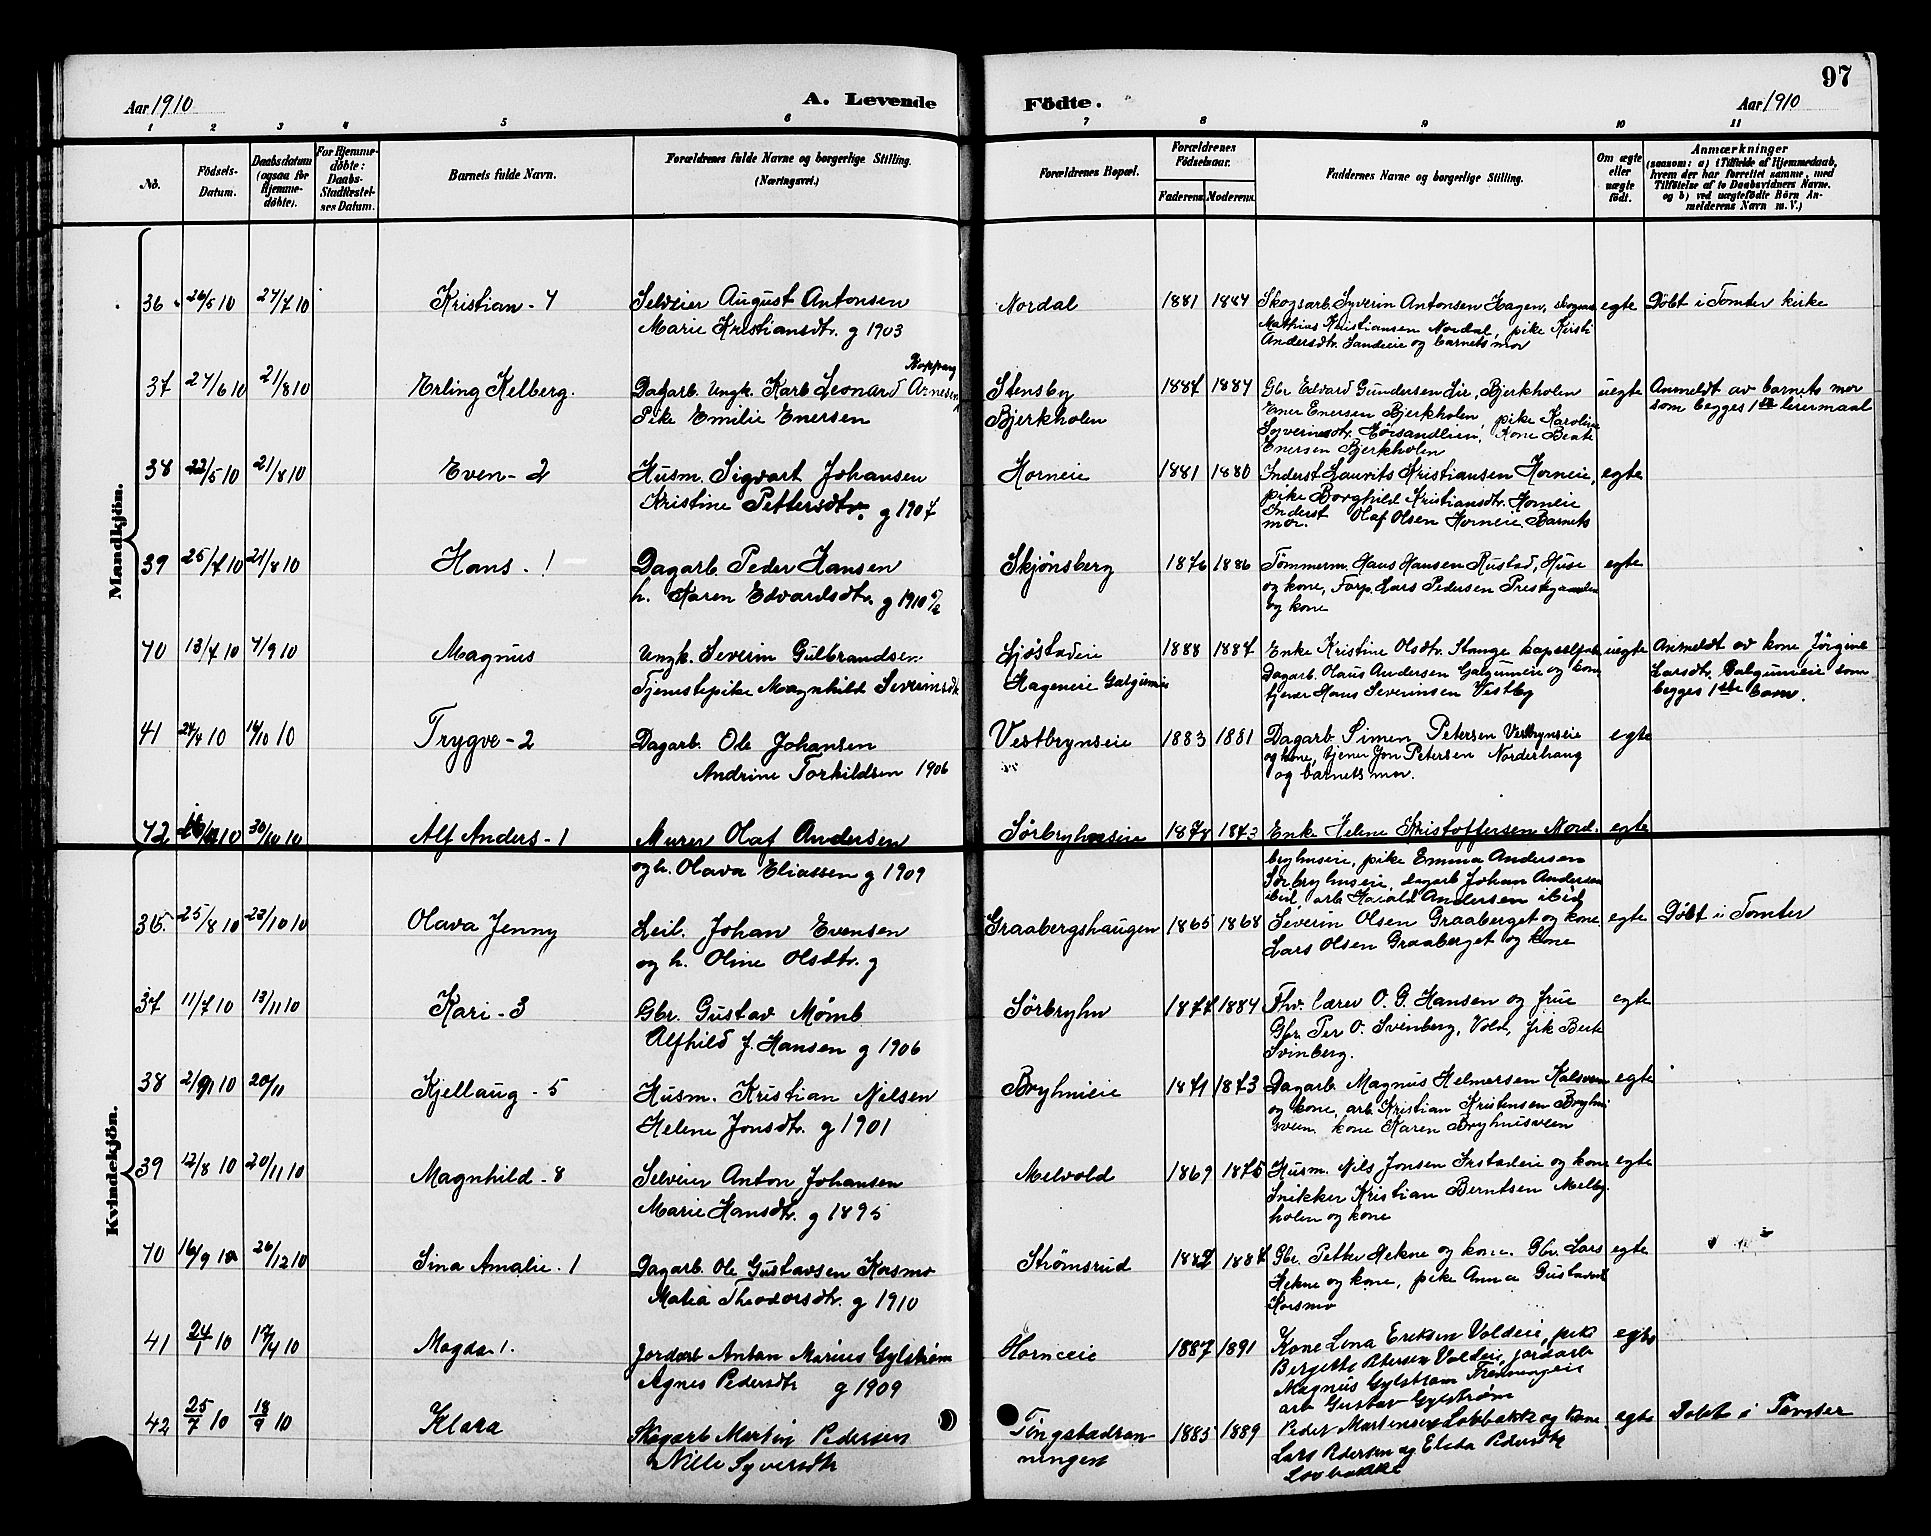 97
Aar 1910
A. Levende Födte.
Aar 1910
1 2 3 4 5 6 7 8 9 10 11
No.
Födsels-Datum.
Daabsdatum (ogsaa for Hjemmedöbte).
For Hjemmedöbte: Daabs-Stadfæstelses Datum.
Barnets fulde Navn.
Forældrenes fulde Navne og borgerlige Stilling. (Næringsvei.)
Forældrenes Bopæl.
Forældrenes Födselsaar.
Faderens Moderens
Faddernes Navne og borgerlige Stilling.
Om ægte eller uægte født.
Anmærkninger
(saasom: a) i Tilfælde af Hjemmedaab, hvem der har forrettet samme, med Tilföielse af to Daabsvidners Navne, og b) ved uægtefödte Börn Anmelderens Navn m. V.)
Mandkjön.
36 26/5 10 24/7 10 Kristian - 4 Selveier August Antonsen Nordal 1881 1884 Skogsarb. Syverin Antonsen Hagen, egte Döbt i Tomter kirke
Marie Kristiansdtr. g 1903 Mathias Kristiansen Nordal, pike
Andersdtr. Sandeeie og barnets mor
37 24/6 10 21/8 10 Erling Kelberg. Dagarb. Ungk. Karb Leonard Arnesen Stensby 1887 1884 Gbr Edvard Gundersen Lie, Bjerkholen uegte Anmeldt av barnets mor
Pike Emilie Enersen Bjerkholen Ener Enersen Bjerkholen, pike Karoline som begges 1ste leiermaal
Enersen Bjerkholen
38 22/5 10 21/8 10 Even - 2 Husm. Sigvart Johansen Horneie 1881 1880 Inderst Laurits Kristiansen Horneie, egte
Kristine Pettersdtr. g 1907 pike Borghild Kristiansdtr. Horneie
Inderst Olaf Olsen Horneie. Barnets
mor.
39 25/7 10 21/8 10 Hans - 1 Dagarb. Peder Hansen Skjönsberg 1876 1886 Tömmerm. Hans Hansen Rustad, Huse egte
h. Karen Edvardsdtr. g 1910 og kone, Forp. Lars Pedersen Prestegaarden
og kone
40 13/7 10 4/9 10 Magnus Ungk. Severin Gulbrandsen 1888 1887 Enke Kristine Olsdtr. Stange uegte Anmeldt av kone Jörgine
Tjenestepike Magnhild Severinsdtr. Hageneie Dagarb. Olaus Andersen og kone Larsdtr. som
tjener Hans Severinsen Vestby begges 1ste barn.
41 24/4 10 16/10 10 Trygve - 2 Dagarb. Ole Johansen Vestbrynseie 1883 1881 Dagarb Simen Petersen Vestbrynseie egte
Andrine Torkildsen 1906 og kone, tjener Jon Petersen Norderhaug
og barnets mor.
42 30/10 10 Alf Anders - 1 Murer Olaf Andersen Sörbryhnseie 1878 1873 Enke Helene Kristoffersen Nord- egte
og h. Olava Eliassen g 1909 bryhnseie, pike Emma Andersen
Sörbryhnseie, dagarb Johan Andersen
ibid, arb Harald Andersen ibid
Kvindekjön.
36 25/8 10 23/10 10 Olava Jenny Leil. Johan Evensen Graabergshaugen 1865 1868 Severin Olsen Graaberget og kone. egte Döbt i Tomter
og h. Oline Olsdtr. g Lars Olsen Graaberget og kone
37 11/7 10 13/11 10 Kari - 3 Gbr. Gustav Mömb Sörbryhn 1877 1884 Fhv. lærer O. G. Hansen og frue egte
Alfhild J. Hansen g 1906 Gbr. Per O. Svinberg, Vold,
Svinberg.
38 10 20/11 Kjellaug - 5 Husm. Kristian Nilsen Bryhnieie 1871 1873 Dagarb Magnus Helmersen egte
Helene Jonsdtr. g 1901 og kone, arb Kristian Kristensen
kone Karen Bryhnisveen
39 12/8 10 20/11 10 Magnhild - 8 Selveier Anton Johansen Melvold 1869 1875 Husm. Nils Jonsen og kone egte
Marie Hansdtr. g 1895 Snikker Kristian Berntsen Melby-
holen og kone
40 16/9 10 26/12 10 Sina Amalie - 1 Dagarb. Ole Gustavsen Korsmo Strömsrud 1887 Gbr. Petter Hekne og kone. Gbr. Lars egte
Matea Theodorsdtr. g 1910 Hekne og kone, pike Anna Gustavsd
Korsmo
41 24/1 10 17/4 10 Magda 1. Jordarb Anton Marius Gylström Horneeie 1887 1891 Kone Lina Eriksen Voldeie, pike egte
Agnes Pedersdtr g 1909 Bergette Petersen Voldeie, jordarb
Magnus Gylström
arb Gustav Gylström
42 25/7 10 18/9 10 Klara Skogarb Martin Pedersen Tingstadran- 1885 1889 Peder Martinsen og kone, egte Döbt i Tomter
Nille Syversdtr ningen Lars Pedersen og